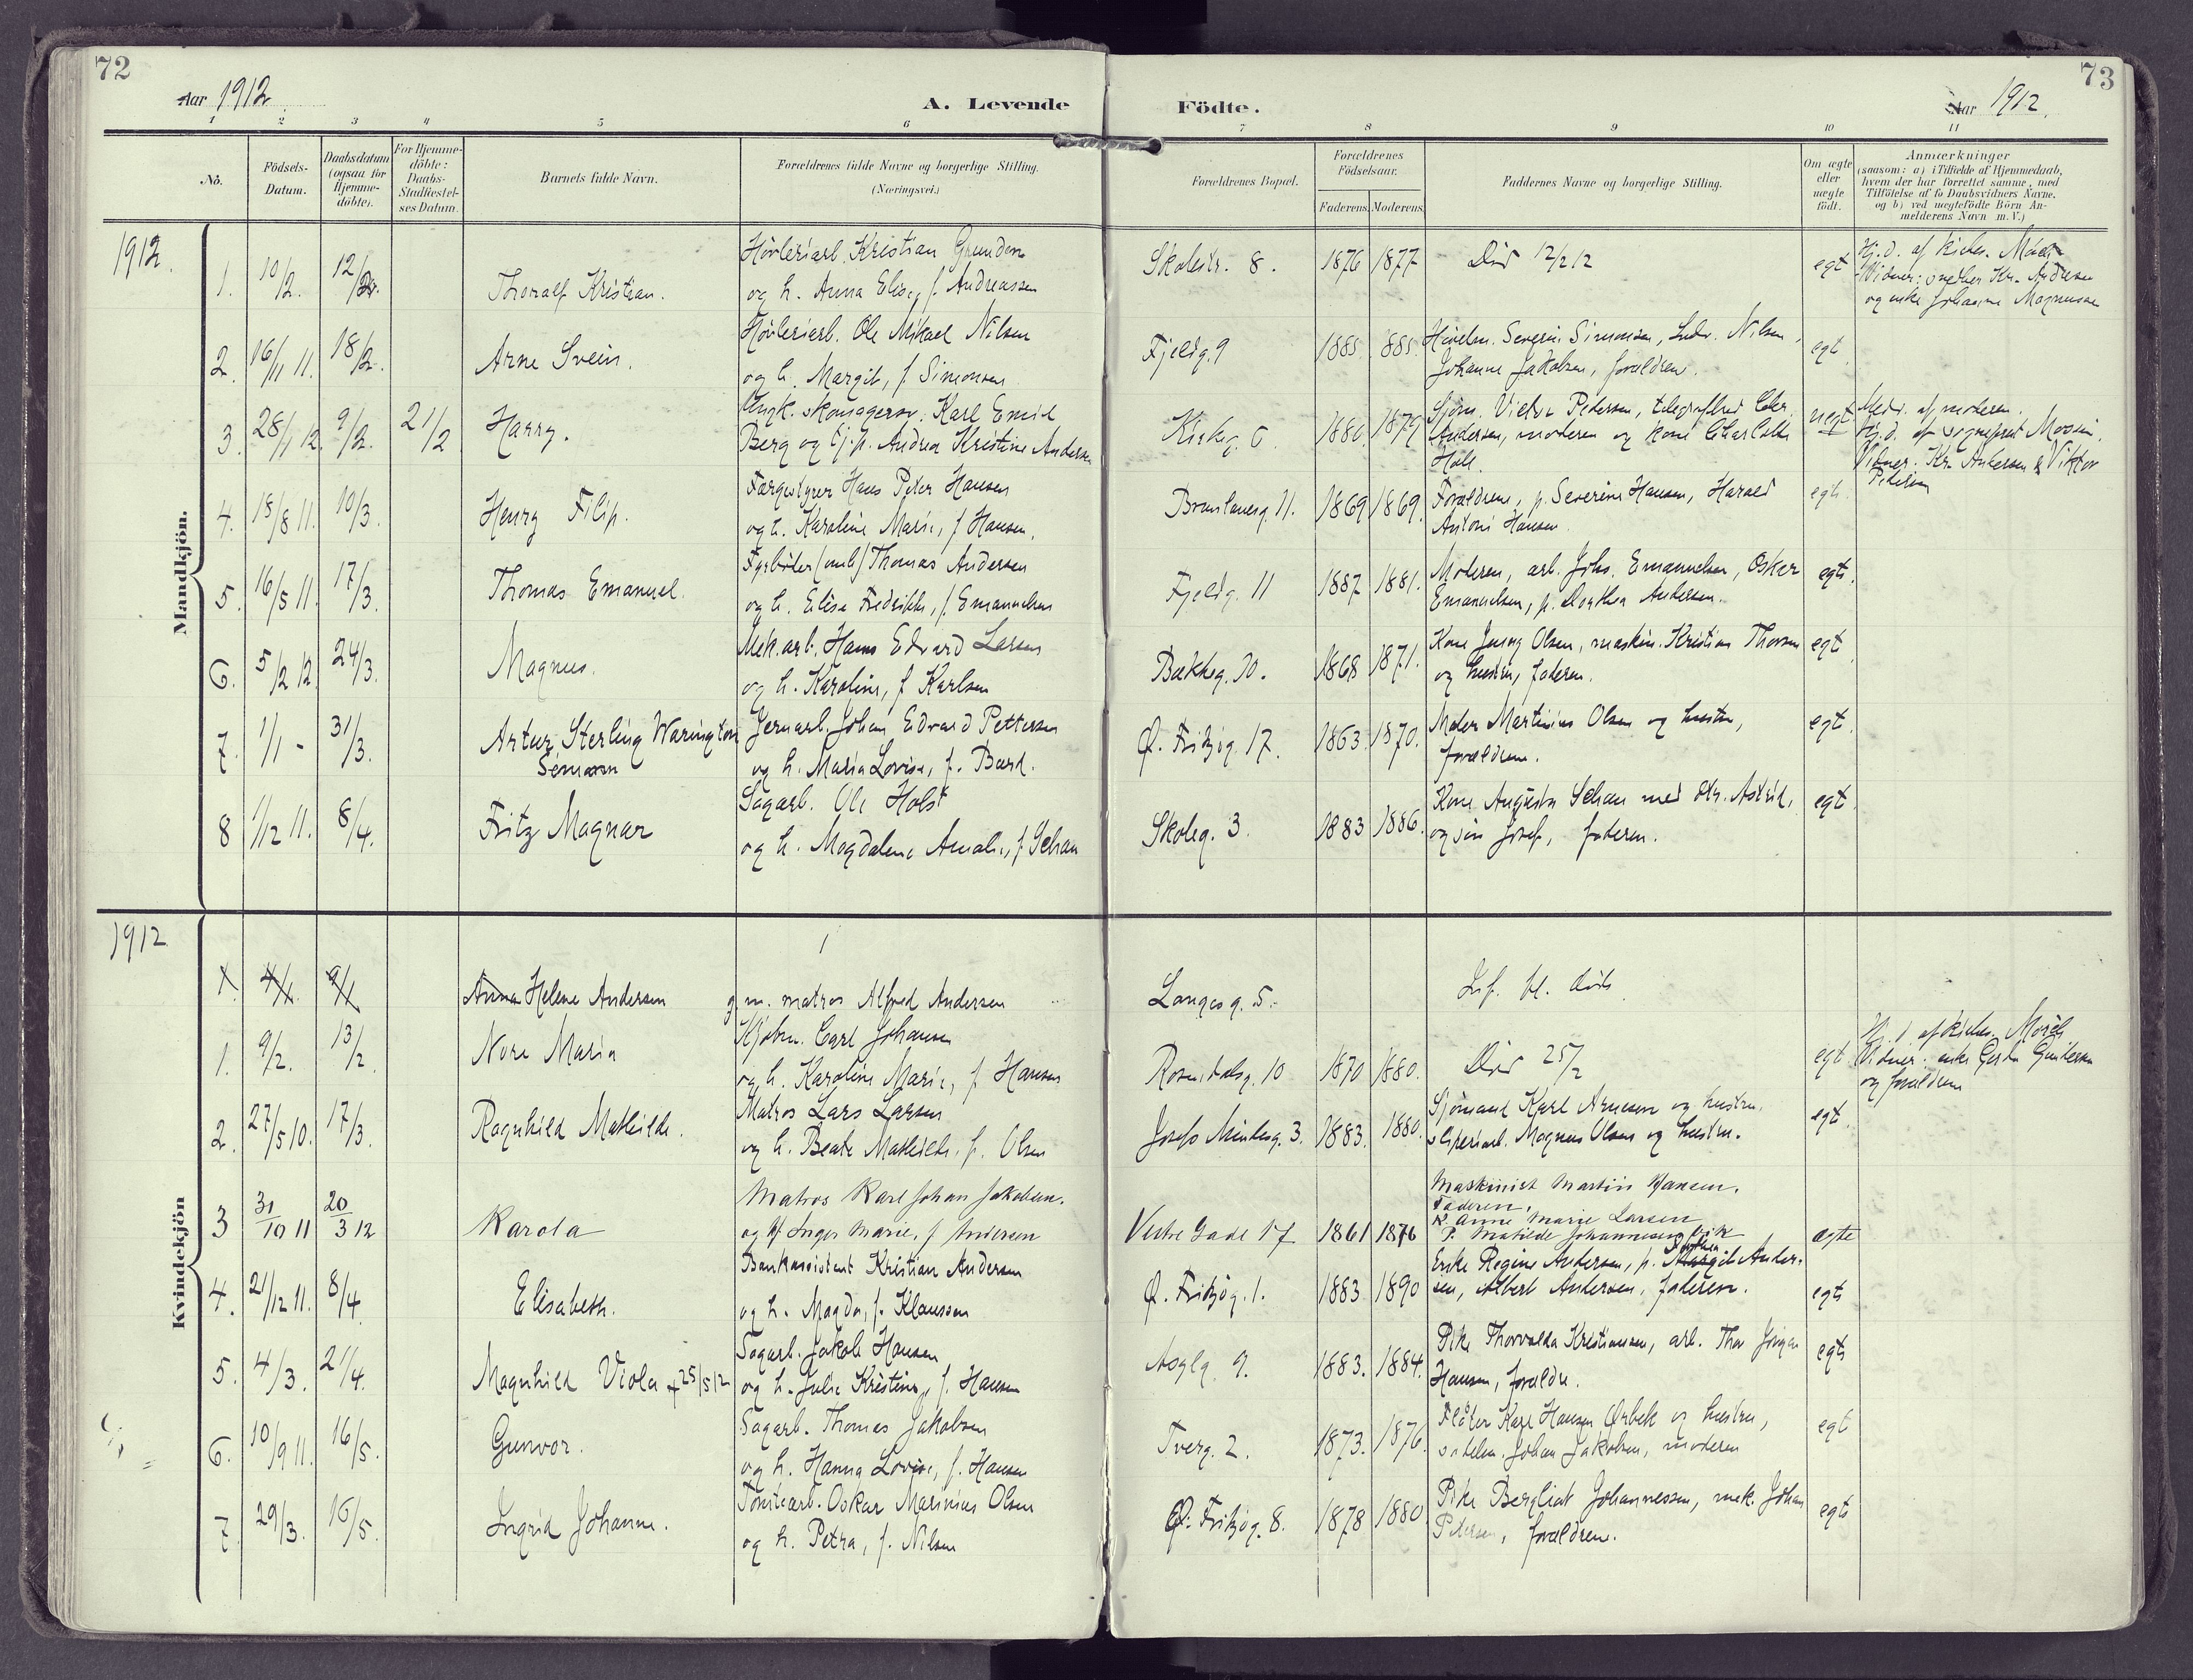 72
Aar 1912
A. Levende
Födte.
Aar 1912.
73
1 2 3 4 5 6 7 8 9 10 11
No.
Födsels-
Datum.
Daabsdatum
(ogsaa for
Hjemme-
döbte).
For Hjemme-
döbte:
Daabs-
Stadfæstel-
ses Datum.
Barnets fulde Navn.
Forældrenes fulde Navne og borgerlige Stilling.
(Næringsvei.)
Forældrenes Bopæl.
Forældrenes
Födselsaar.
Faderens. Moderens.
Faddernes Navne og borgerlige Stilling.
Om ægte
eller
uægte
födt.
Anmærkninger
(saasom: a) i Tilfælde af Hjemmedaab,
hvem der har forrettet samme, med
Tilföielse af to Daabsvidners Navne,
og b) ved uægtefödte Börn An-
melderens Navn m. V.)
Mandkjön.
1912.
1. 10/2. 12/2. Thoralf Kristian.
Høvleriarb. Kristian
og h. Anna Elise, f. Andreassen
Skolestr. 8. 1876 1877 Död 12/2 12 egt
Hj.d. af
Vidner: Kr. Andersen
og enke Johanne Magnussen
2. 16/11 11. 18/2. Arne Svein.
Høvleriarb. Ole Mikael Nilsen
og h. Margit, f. Simonsen
Fjeldg. 9 1885. 1885.
Severin Simonsen, Ludv. Nilsen,
Johanne Jakobsen, forældrene. egt
3. 28/1 12. 9/2. 21/2 Harry.
Ungk. skomagersv. Karl Emil
Berg og tj.p. Andrea Kristine Andersen
Kirkeg. 6 1886. 1879
Sjøm. Victor Pedersen, Chr.
Andersen, moderen og kone Charlotte
Holt. uegt
Medd. af moderen.
Hj.d. af
Vidner: Kr. Andersen & Viktor
Pedersen
4. 15/8 11. 10/3. Henry Filip.
Hans Peter Hansen
og h. Karoline Marie, f. Hansen.
11. 1869 1869.
Forældrene, p. Severine Hansen, Harald
Antoni Hansen. egt.
5. 16/5 11. 17/3. Thomas Emanuel.
Fyrbøter Thomas Andersen
og h. Elise Fredrikke, f. Emanuelsen
Fjeldg. 11 1887 1881.
Moderen, arb. Johs. Emanuelsen, Oskar
Emanuelsen, p. Dorthea Andersen. egt.
6. 5/2 12. 24/3. Magnus.
Mek.arb. Hans Edvard Larsen
og h. Karoline, f. Karlsen
Bækkeg. 10. 1868 1871.
Kone Jenny Olsen, maskin. Kristian Thorsen
og hustru, faderen. egt
7. 1/1 - 31/3. Artur Sterling Warington
Semann
Jernarb. Johan Edvard Pettersen
og h. Maria Lovise, f. Bard.
Ø. Fritzøg. 17. 1863 1870.
Maler Martinius Olsen og hustru,
forældrene. egt.
8 1/12 11. 8/4. Fritz Magnar
Sagarb. Ole Holst
og h. Magdalene Amalie, f. Schau
Skoleg. 3. 1883 1886.
Kone Augusta Schau med dtr. Astrid,
og søn Josef, faderen. egt.
Kvindekjön
1912
Anna Helene Andersen
g m. matros Alfred Andersen
Langesg. 5.
Inf. bl. døde
1. 9/2. 13/2 Nora Maria
Kjøbm. Carl Johansen
og h. Karoline Marie, f. Hansen
Rosendalsg. 10 1870 1880. Död 25/2 egt
Hj.d. af
Vidner: enke Gerda Gundersen
og forældrene
2. 27/5 10. 17/3. Ragnhild Mathilde.
Matros Lars Larsen
og h. Beate Mathilde, f. Olsen
Josefs Mindesg. 3. 1883. 1880.
Sjømand Karl Arnesen og hustru.
sliperiarb. Magnus Olsen og hustru. egt.
3 31/10 11 20/3 12 Karola
Matros Karl Johan Jakobsen.
og H. Inger Marie, f. Andersen
Vestre Gade 17 1861 1876
Maskinist Martin Hansen.
Faderen.
K. Anne Marie Larsen
P. Matilde Johannessen ægte
4. 21/12 11. 8/4. Elisabeth.
Bankassistent Kristian Andersen
og h. Magda, f. Klaussen
Ø. Fritzøg. 1. 1883 1890
Enke Regine Andersen, p. Margit Ander-
sen, Albert Andersen, faderen. egte
5. 4/3. 21/4. Magnhild Viola + 25/5 12
Sagarb. Jakob Hansen
og h. Julie Kristine, f. Hansen
Asylg. 9. 1883. 1884.
Pike Thorvalda Kristiansen, arb. Thor
Hansen, forældre. egte
6. 10/9 11. 16/5. Gunvor.
Sagarb. Thomas Jakobsen
og h. Hanna Lovise, f. Hansen
Tverg. 2. 1873. 1876.
Fløter Karl Hansen Ørbek og hustru,
Johan Jakobsen, moderen egt
7. 29/3. 16/5. Ingrid Johanne.
Tomtearb. Oskar Marinius Olsen
og h. Petra, f. Nilsen
Ø. Fritzøg. 8. 1878 1880
Pike Bergliot Johannessen, mek. Johan
Petersen, forældrene. egte